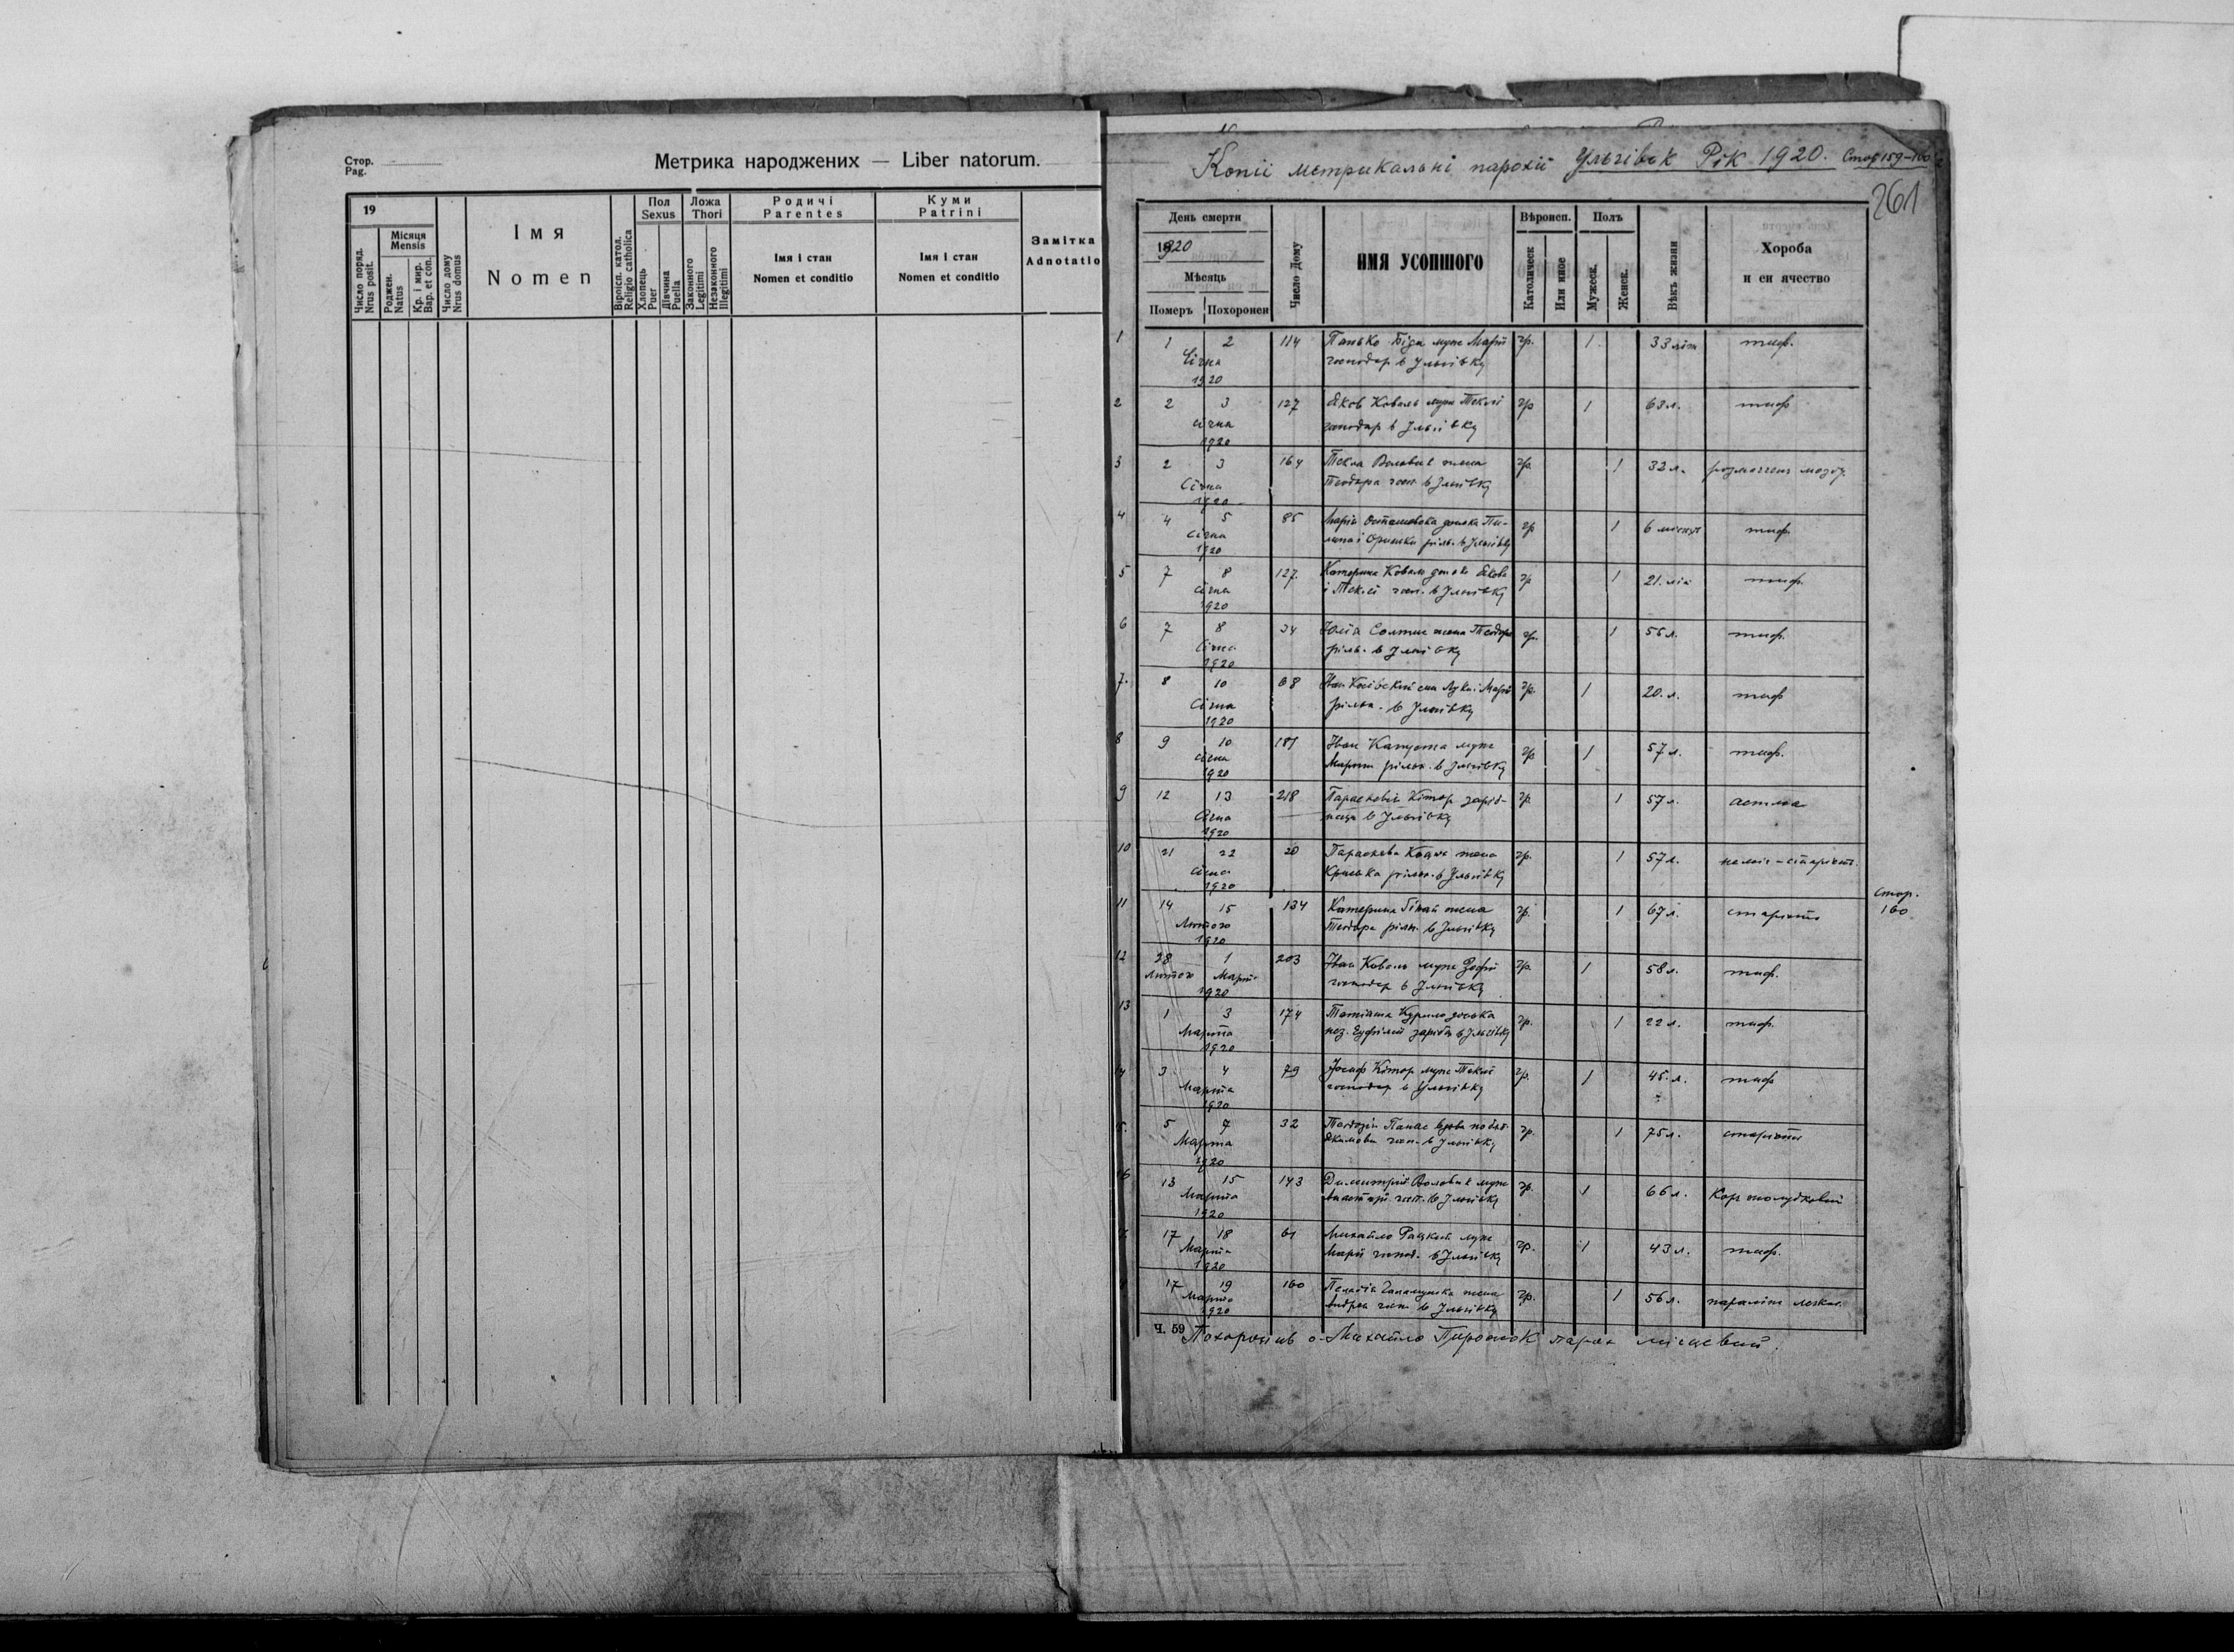 Стор.
Pag.
Метрика народжених — Liber natorum.
19
Місяця
Mensis
Число поряд.
Nrus posit.
Роджен.
Natus
Кр. і мир.
Bap. et con.
Число дому
Nrus domus
Імя
Nomen
Віроісп. катол.
Religio catholica
Пол
Sexus
Хлопець
Puer
Дівчина
Puella
Ложа
Thori
Законного
Legitimi
Незаконного
Illegitimi
Родичі
Parentes
Імя і стан
Nomen et conditio
Куми
Patrini
Імя і стан
Nomen et conditio
Замітка
Adnotatio
Копії метрикальні парохії Ульгівок Рік 1920. Стор 159-160
261
День смерти
1920
Мѣсяць
Померъ Похоронен
Число Дому
ИМЯ УСОПШОГО
Вѣроисп.
Католическ
Или иное
Полъ
Мужеск.
Женск.
Вѣкъ жизни
Хороба
и еи ячество
1 1 2 114 Панько Біда муж Марії гр. 1 33 літ тиф.
Січня господар в Ульгівку
1920
2 2 3 127 Яков Коваль муж Теклі гр 1 63 л. тиф
січня господар в Ульгівку
1920
3 2 3 164 Текла Воловик жена гр. 1 32 л. мозгу.
Січня Теодора госп. в Ульгівку
1920
4 4 5 85 Марія донька Пи- гр 1 6 місяц тиф.
січня липа і рільн. в Ульгівку
1920
5 7 8 127. Катерина Коваль донька Якова гр 1 21. літ тиф.
січня і Теклі госп. в Ульгівку
1920
6 7 8 34 Юлія Солтис жена Теодора гр. 1 56 л. тиф.
Січня рільн. в Ульгівку
1920
7. 8 10 68 Іван син Луки і Марії гр. 1 20. л. тиф
Січня рільн. в Ульгівку
1920
8 9 10 181 Іван Капуста муж гр 1 57 л. тиф.
січня Марти рільн. в Ульгівку
1920
9 12 13 218 Параскевія Кітор заріб- гр. 1 57 л. астма
Січня ниця в Ульгівку
1920
10 21 22 20 Параскева жена гр. 1 57 л. старість.
січня Гринька рільн. в Ульгівку
1920
11 14 15 134 Катерина жена гр. 1 67 л. старість
Лютого Теодора рільн. в Ульгівку
1920
стор.
160
12 28 1 203 Іван Коваль муж Зофії гр. 1 58 л. тиф.
Лютого Марта господар в Ульгівку
1920
13 1 3 174 Татіяна Курило донька гр. 1 22 л. тиф.
Марта нез. Евфемії в Ульгівку
1920
14 3 4 79 Йосиф Кітор муж Теклі гр. 1 45. л. тиф
Марта господар в Ульгівку
1920
5 7 32 Теодозія Панас вдова по гр. 1 75 л. старість
Марта госп. в Ульгівку
1920
16 13 15 143 Димитрій Воловик муж гр. 1 66 л. жолудковий
Марта Анастазії госп. в Ульгівку
1920
17 18 61 Михайло Рацкий муж гр. 1 43 л. тиф.
Марта Марії господ. в Ульгівку
1920
17 19 160 Пелагія жена гр. 1 56 л. параліж
Марта Андрея госп. в Ульгівку
1920
Ч. 59 Похоронив о. Михайло парох місцевий.